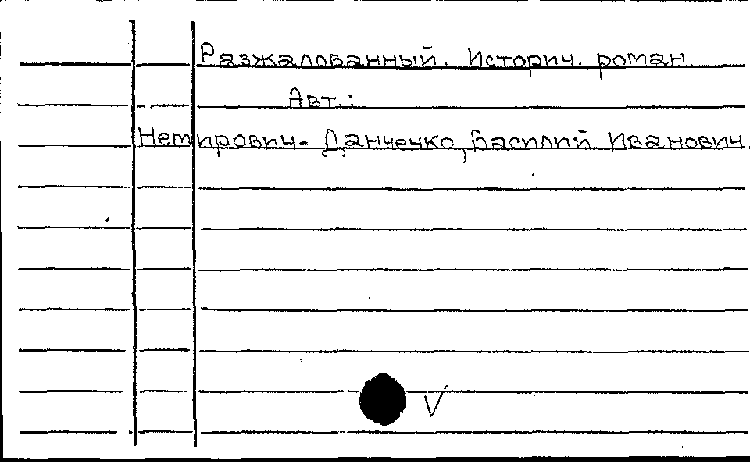 Разжалованный. Историч. роман
Авт.:
Немирович-Данченко, Василий Иванович.
V